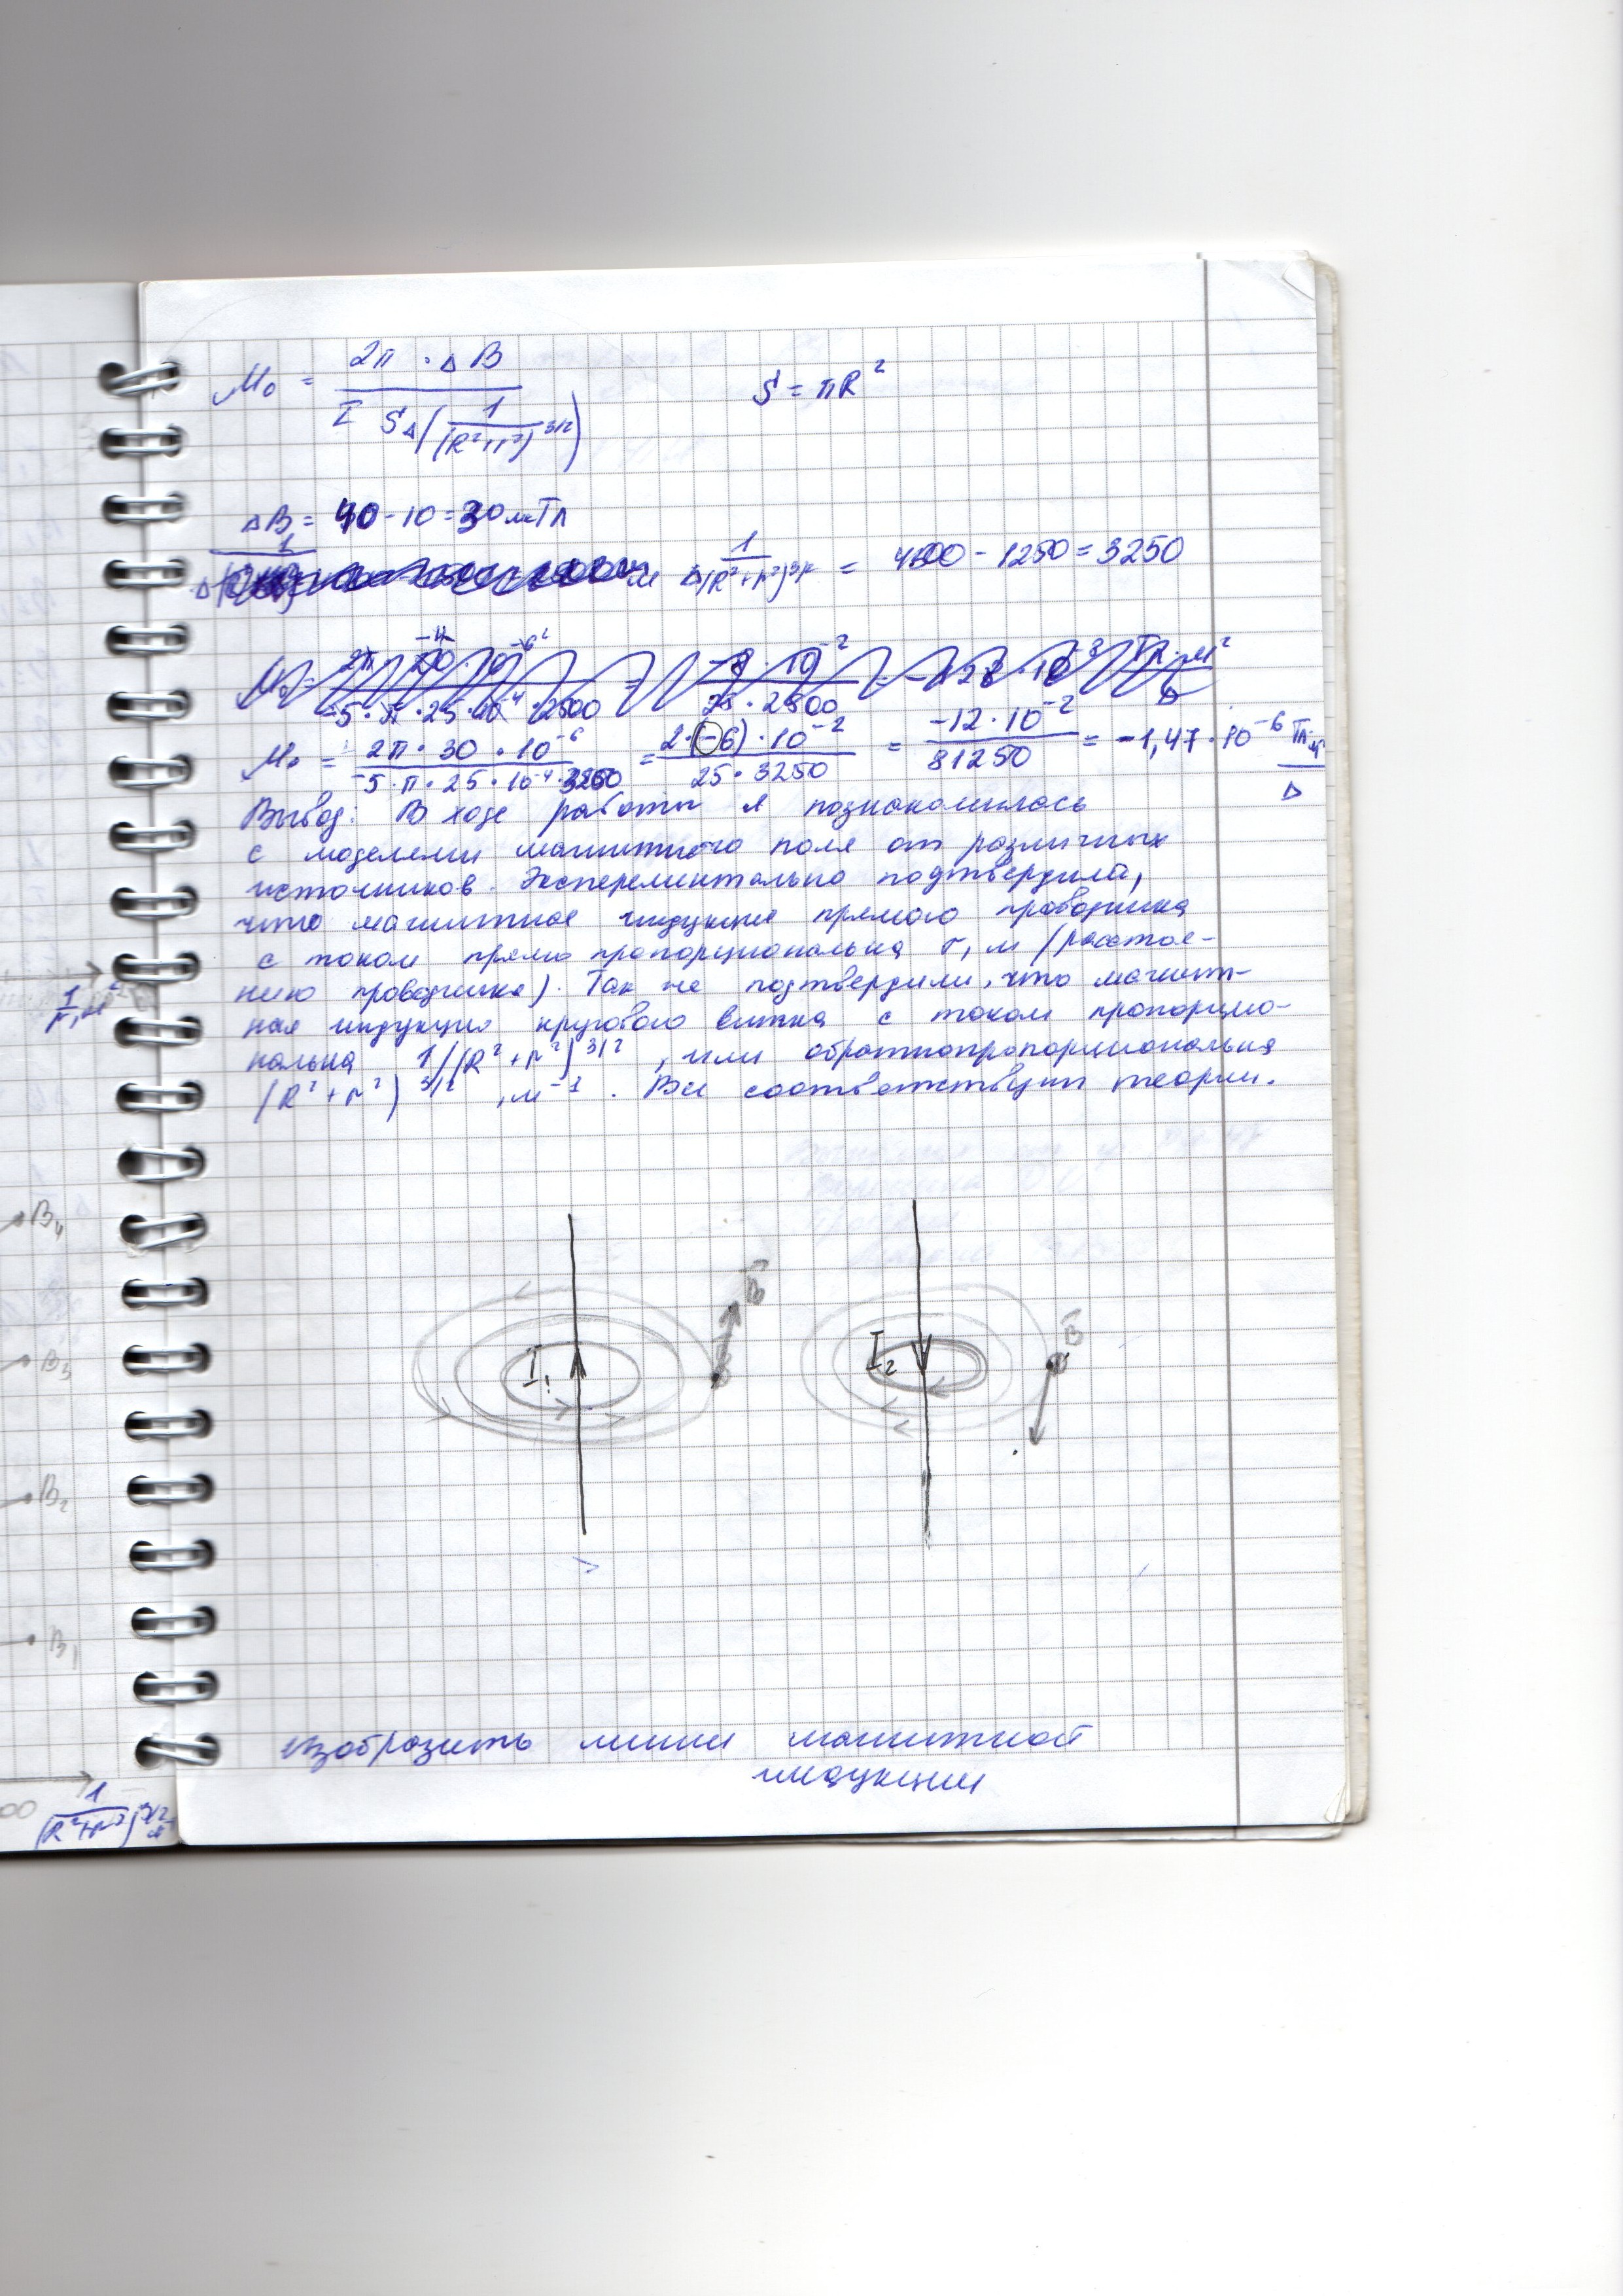 μ₀ = 2π · ΔB / I SΔ(1/(R²+r²)^3/2)      S = πR²
ΔB = 40 - 10 = 30 мкТл
Δ 1/(R²+r²)^3/2 = 4500 - 1250 = 3250
μ₀ = 2π · 30 · 10⁻⁶ / -5 · π · 25 · 10⁻⁴ · 3250 = 2·(-6) · 10⁻² / 25 · 3250 = -12 · 10⁻² / 81250 = -1,47 · 10⁻⁶ Тл·м²/А
Вывод: В ходе работы я познакомилась
с моделями магнитного поля от различных
источников. Эксперементально подтвердила,
что магнитная индукция прямого проводника
с током прямо пропорциональна r, м (расстоя-
нию проводника). Так же подтвердили, что магнит-
ная индукция кругового витка с током пропорцио-
нальна 1/(R²+r²)^3/2, или обратнопропорциональна
(R²+r²)^3/2, м⁻¹. Все соответствует теории.
1/r, м⁻¹
B₄
B₃
B₂
B₁
I₁
B
I₂
B
изобразить линии магнитной
индукции
00 1/(R²+r²)^3/2